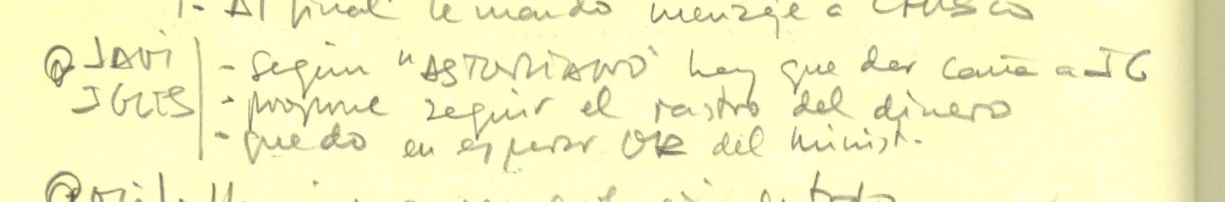 1- Al final le mando mensaje a CHUSCO
JAVI - Según "ASTURIANO" hay que dar caña a IG
IGLES - propone seguir el rastro del dinero
- quedo en esperar OK del minist.